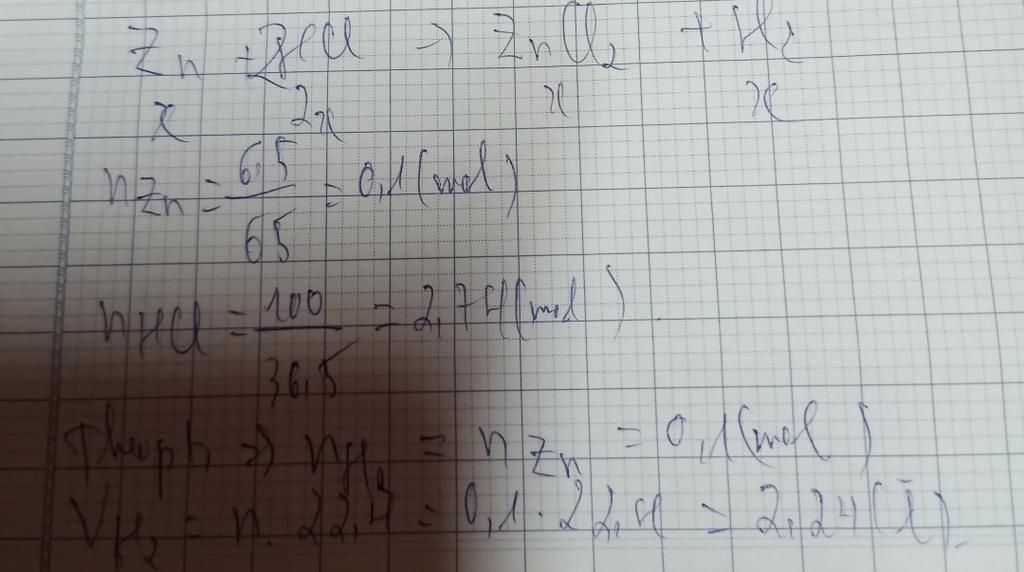 Zn + 2HCl → ZnCl₂ + H₂
x 2x x x
nZn = 6,5/65 = 0,1 (mol)
nHCl = 100/36,5 = 2,74 (mol).
Theo pt ⇒ nH₂ = nZn = 0,1 (mol)
VH₂ = n. 22,4 = 0,1 . 22,4 = 2,24 (l).